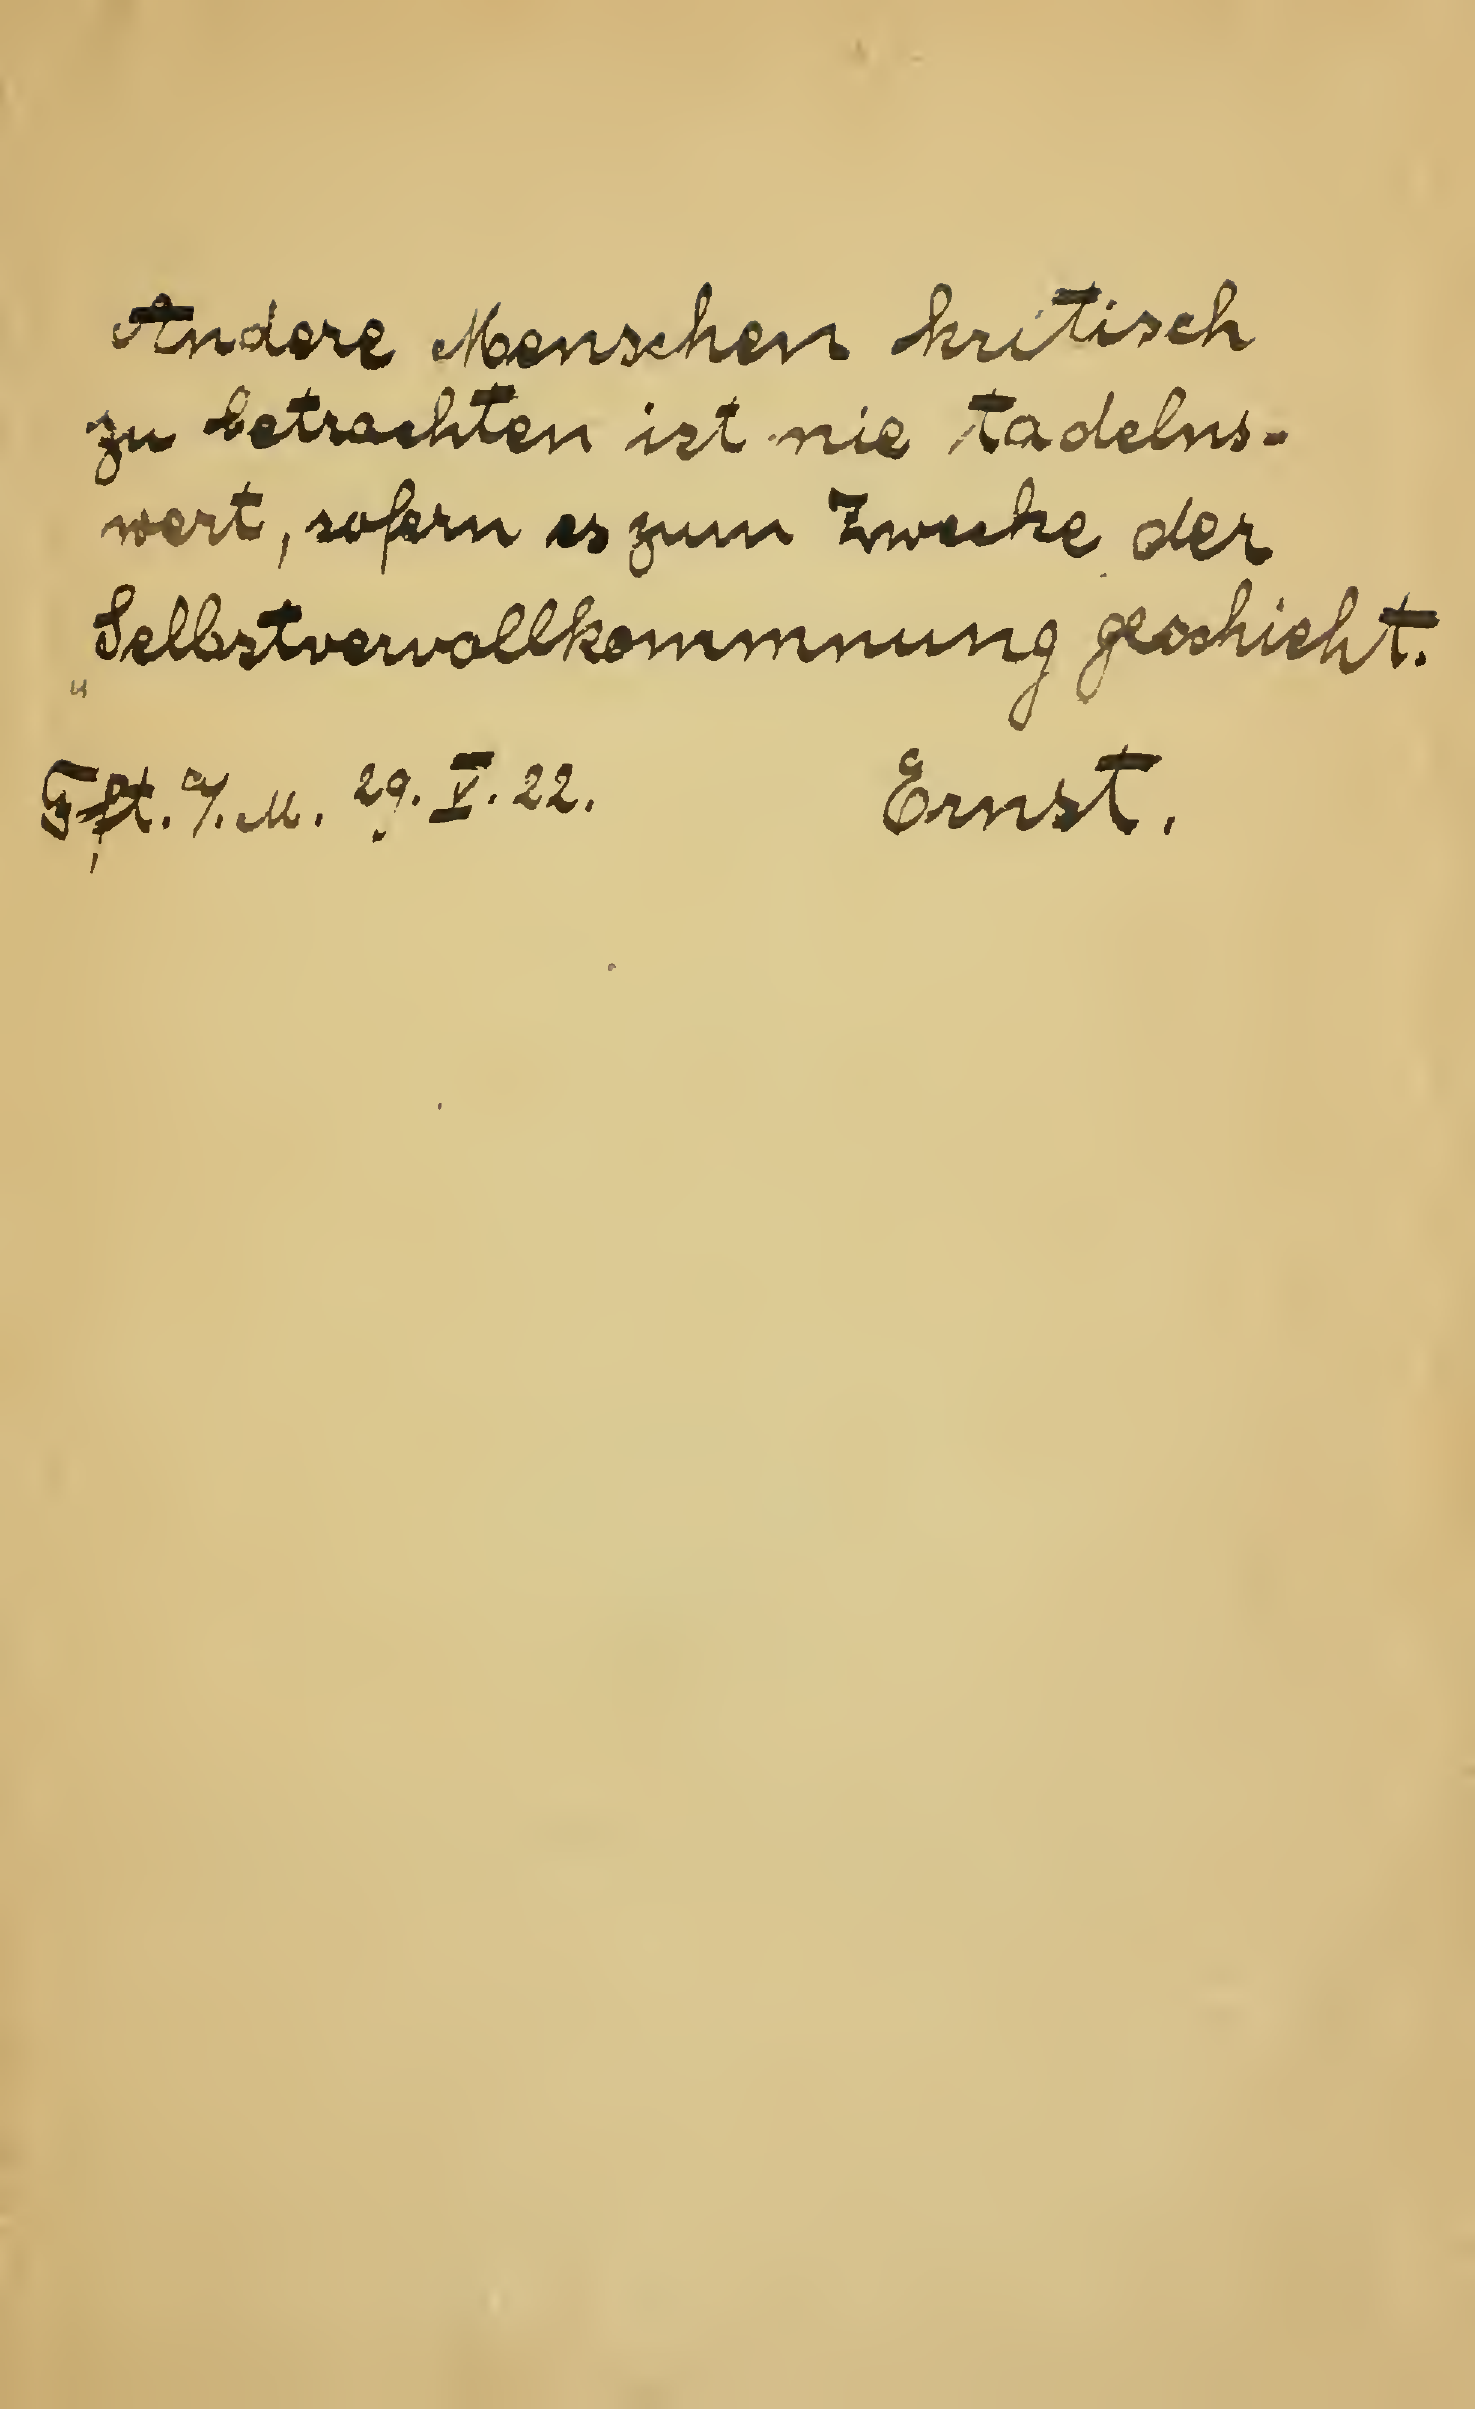 Andere Menschen kritisch
zu betrachten ist nie tadelns-
wert, sofern es zum Zwecke der
Selbstvervollkommnung geschieht.
Fft. a/. M. 29. V. 22. Ernst.